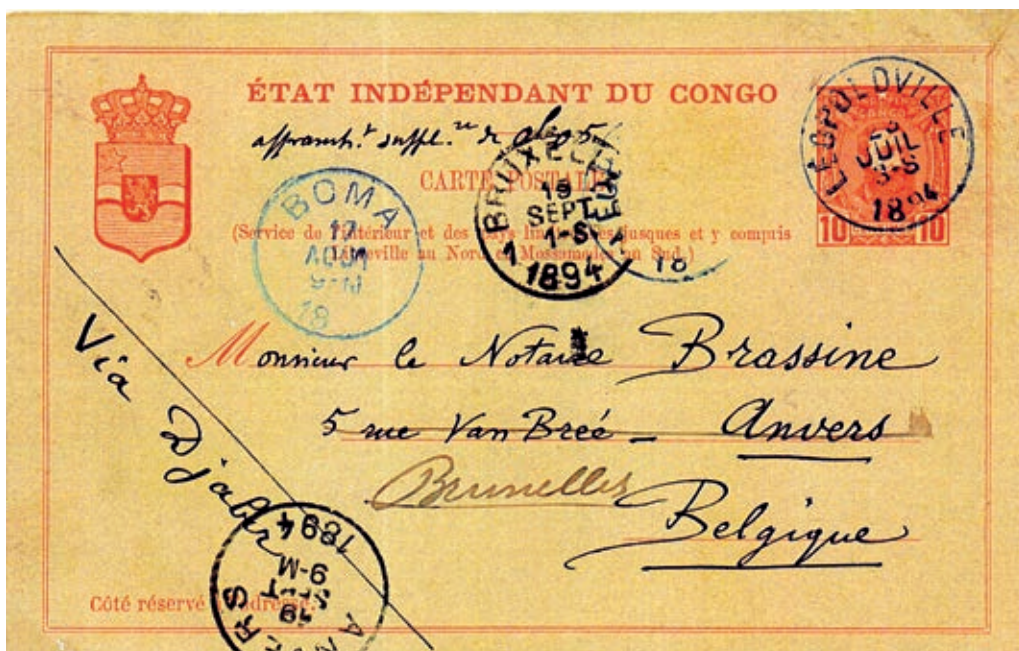 ÉTAT INDÉPENDANT DU CONGO
affrancht. supplre de
CARTE POSTALE
(Service de l'intérieur et des pays jusques et y compris
Libreville au Nord et Mossamedes au Sud.)
LÉOPOLDVILLE
JUIL
3-S
1894
10 10
BOMA
17
AOUT
9-M
18
BRUXELLES
19
SEPT
1-S
1894
18
Via
Monsieur le Notaire Brassine
5 rue Van Bree - Anvers
Bruxelles
Belgique
ANVERS
19
SEPT
9-M
1894
Côté réservé à l'adresse.